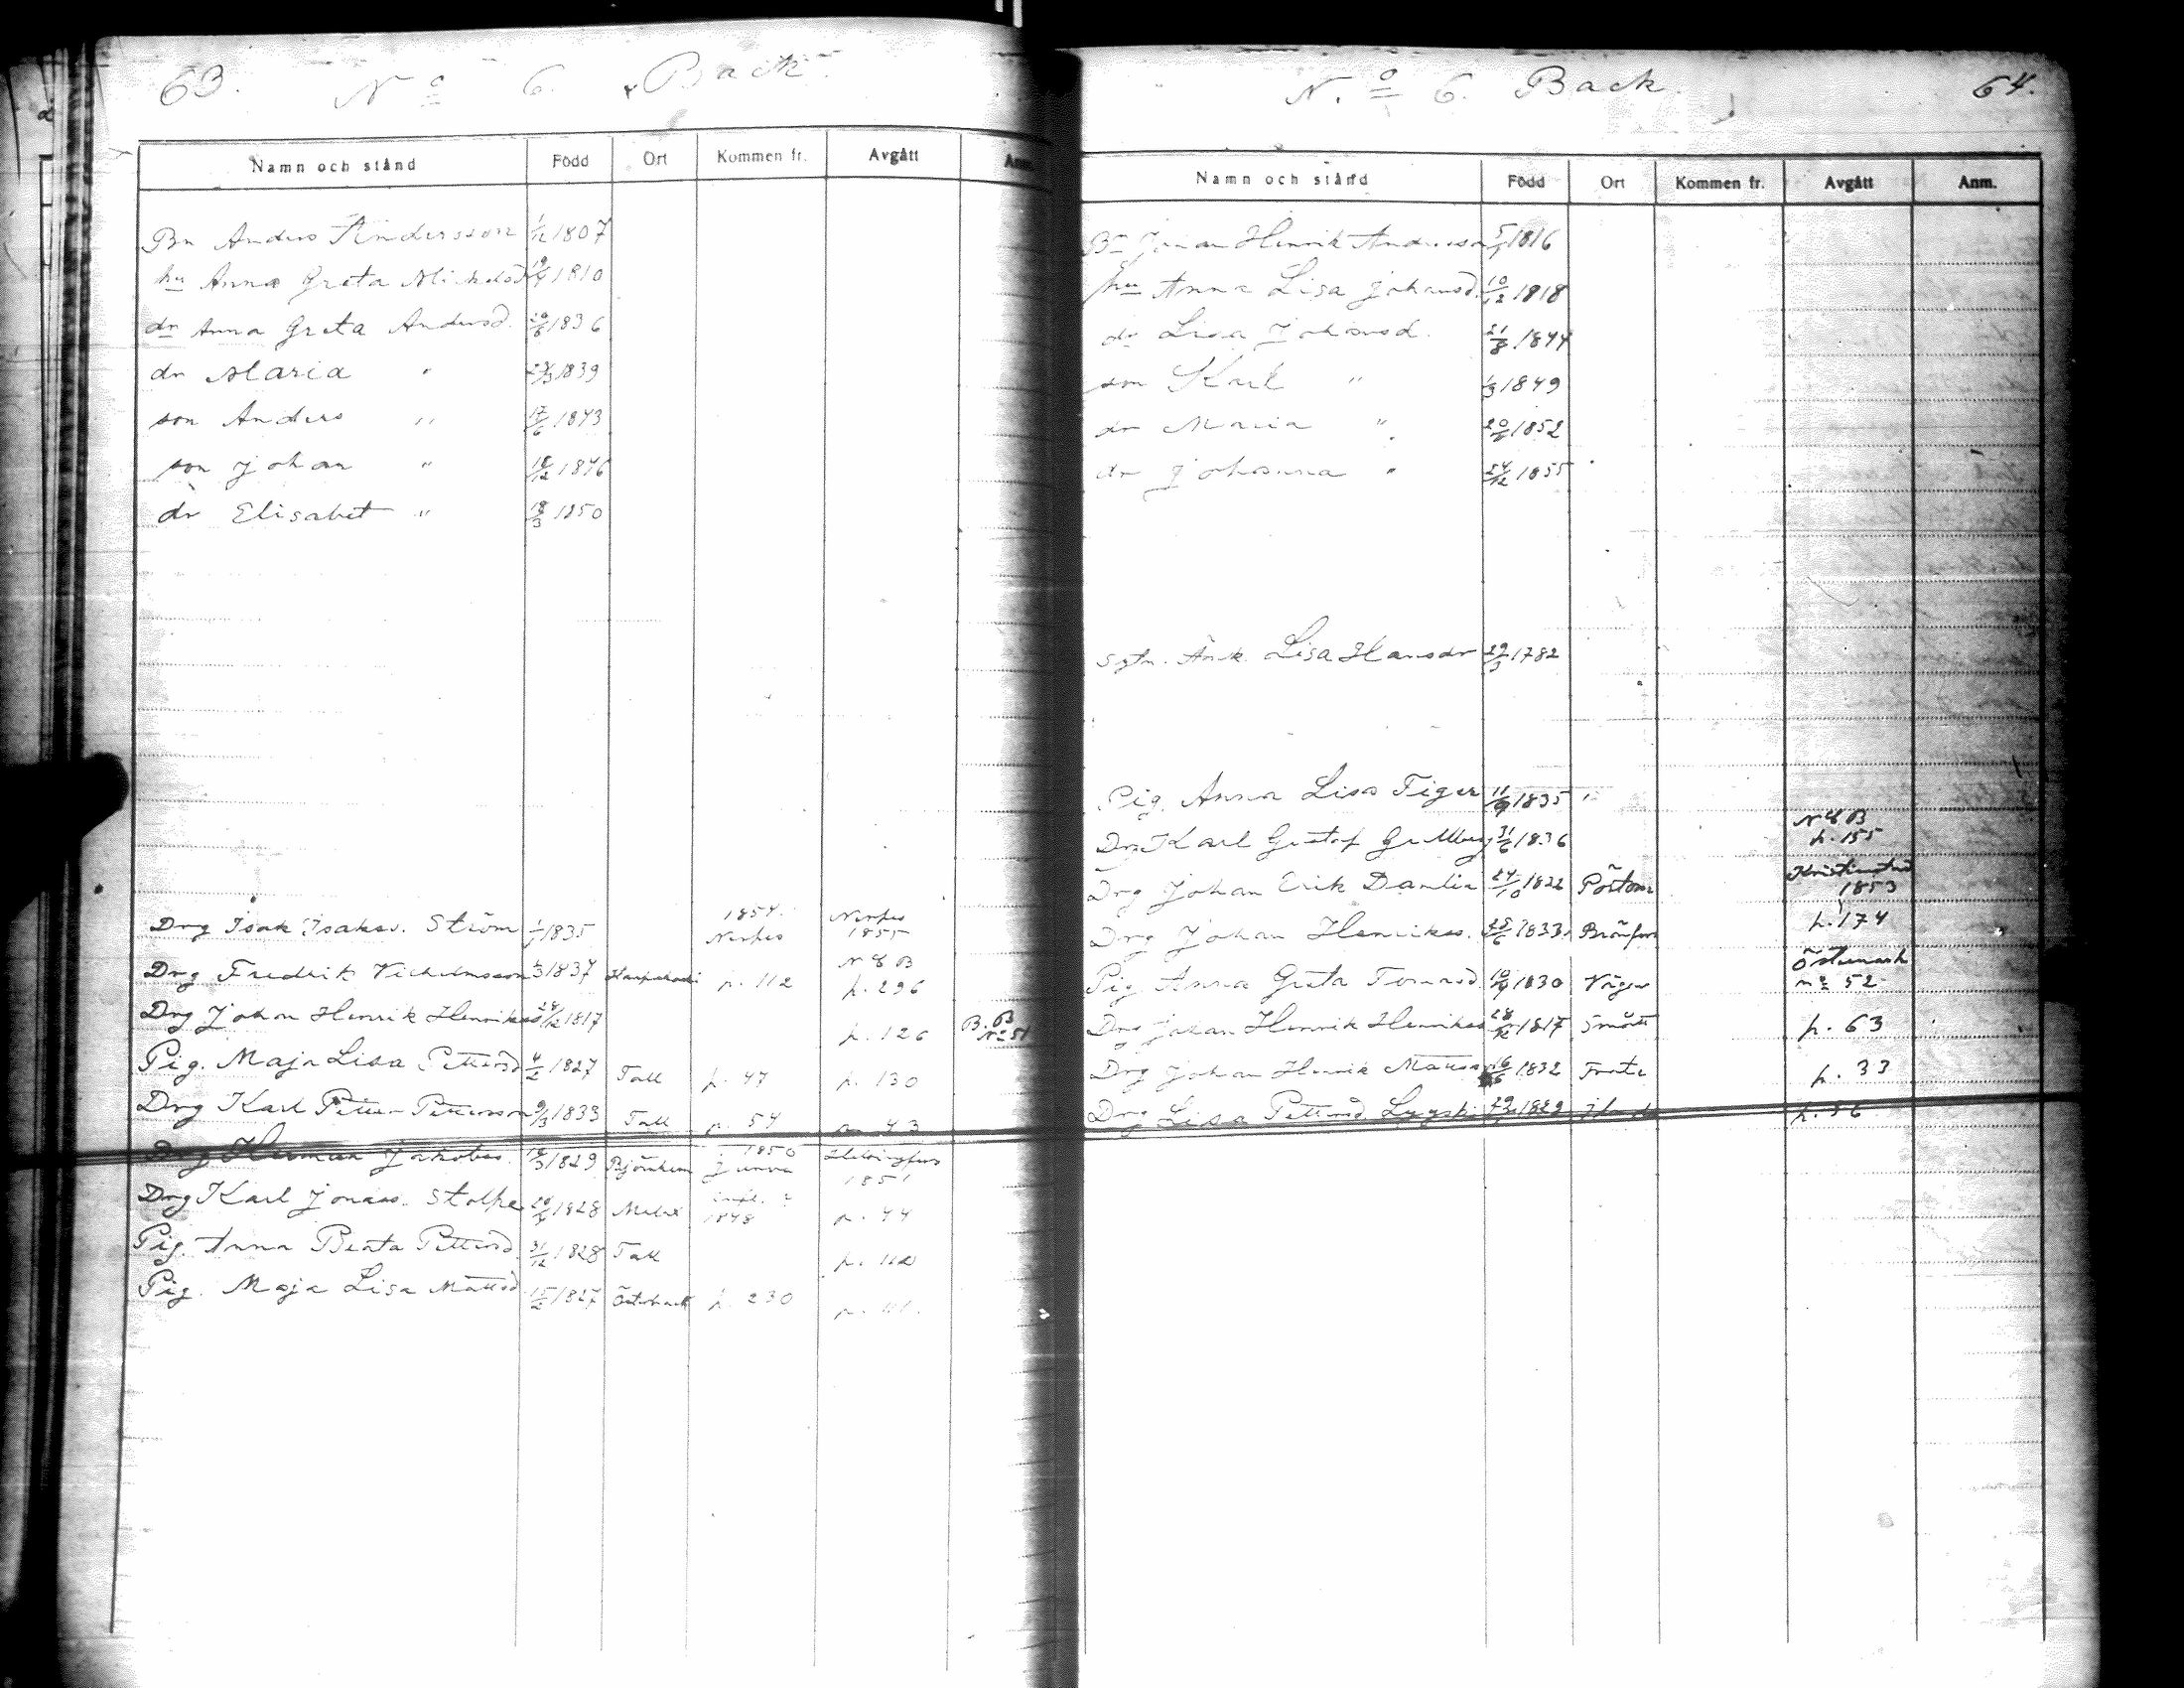 63. No 6. Back
Namn och stånd Född Ort Kommen fr. Avgått Anm.
Bn Anders Andersson 1/12 1807
hu Anna Greta Mickelsd 19/4 1810
dr Anna Greta Andersd. 20/6 1836
dr Maria " 23/3 1839
son Anders " 17/6 1843
son Johan " 18/12 1846
dr Elisabet " 18/3 1850
Drg Isak Isakss. Ström 1835 1854. Nerpes Nerpes 1855
Drg Fredrik Vilhelmsson 1837 p. 112 N & B p. 296
Drg Johan Henrik Henrikss 28/12 1817 p. 126 B. B No 51
Pig. Maja Lisa Pettersd 4/2 1827 Tall p. 47 p. 130
Drg Karl Petter Pettersson 9/3 1833 Tall p. 54 p. 43
Drg Herman Jakobss. 1829 Björnhem 1850 Jurva Helsingfors 1851
Drg Karl Jonass. Stolpe 1828 1848 p. 44
Pig. Anna Beata Pettersd. 31/12 1828 Tall p. 112
Pig. Maja Lisa Mattsd 15/2 1827 Österback p. 230
N. o 6. Back 64.
Namn och stånd Född Ort Kommen fr. Avgått Anm.
Bn Johan Henrik Andersson 1816
hu Anna Lisa Johansd. 10/12 1818
dr Lisa Johansd. 21/8 1844
son Karl " 1/3 1849
dr Maria " 20/6 1852
dr Johanna " 24/12 1855
Sytn. Änk. Lisa Hansdr 29/3 1782
Pig. Anna Lisa Tiger 11/9 1835
Drg Karl Gustaf 31/6 1836 N & B p. 155
Drg Johan Erik Danlin 24/10 1822 Pörtom Kristinestad 1853
Drg Johan Henrikss. 25/6 1833 p. 174
Pig Anna Greta Tomasd 10/9 1830 Östermark no 52
Drg Johan Henrik Henrikss 28/12 1817 Smått p. 63
Drg Johan Henrik Mattss 16/6 1832 p. 33
Drg Lisa Pettersd 1829 p. 56